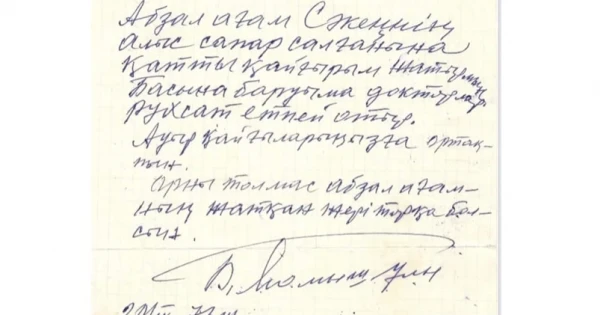 Абзал ағам Сәкеннің
алыс сапар салғанына
қатты қайғырып жатырмын.
Басына баруыма докторлар
рұхсат етпей отыр.
Ауыр қайғыларыңызға ортақ-
пын.
Орны толмас абзал ағам-
ның жатқан жері торқа бол-
сын.
Б. Момыш Ұлы